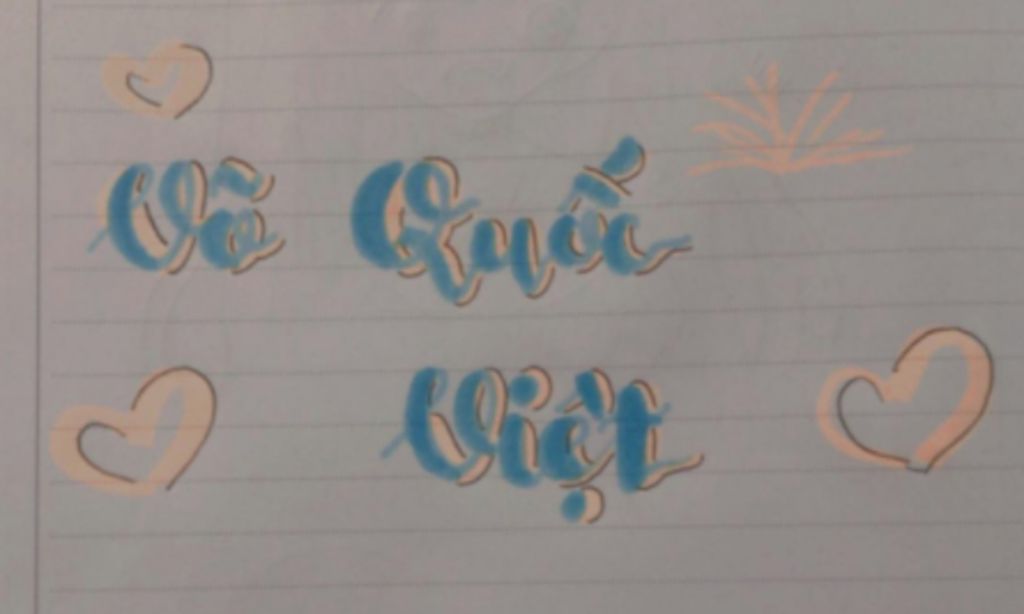 Võ Quốc
Việt